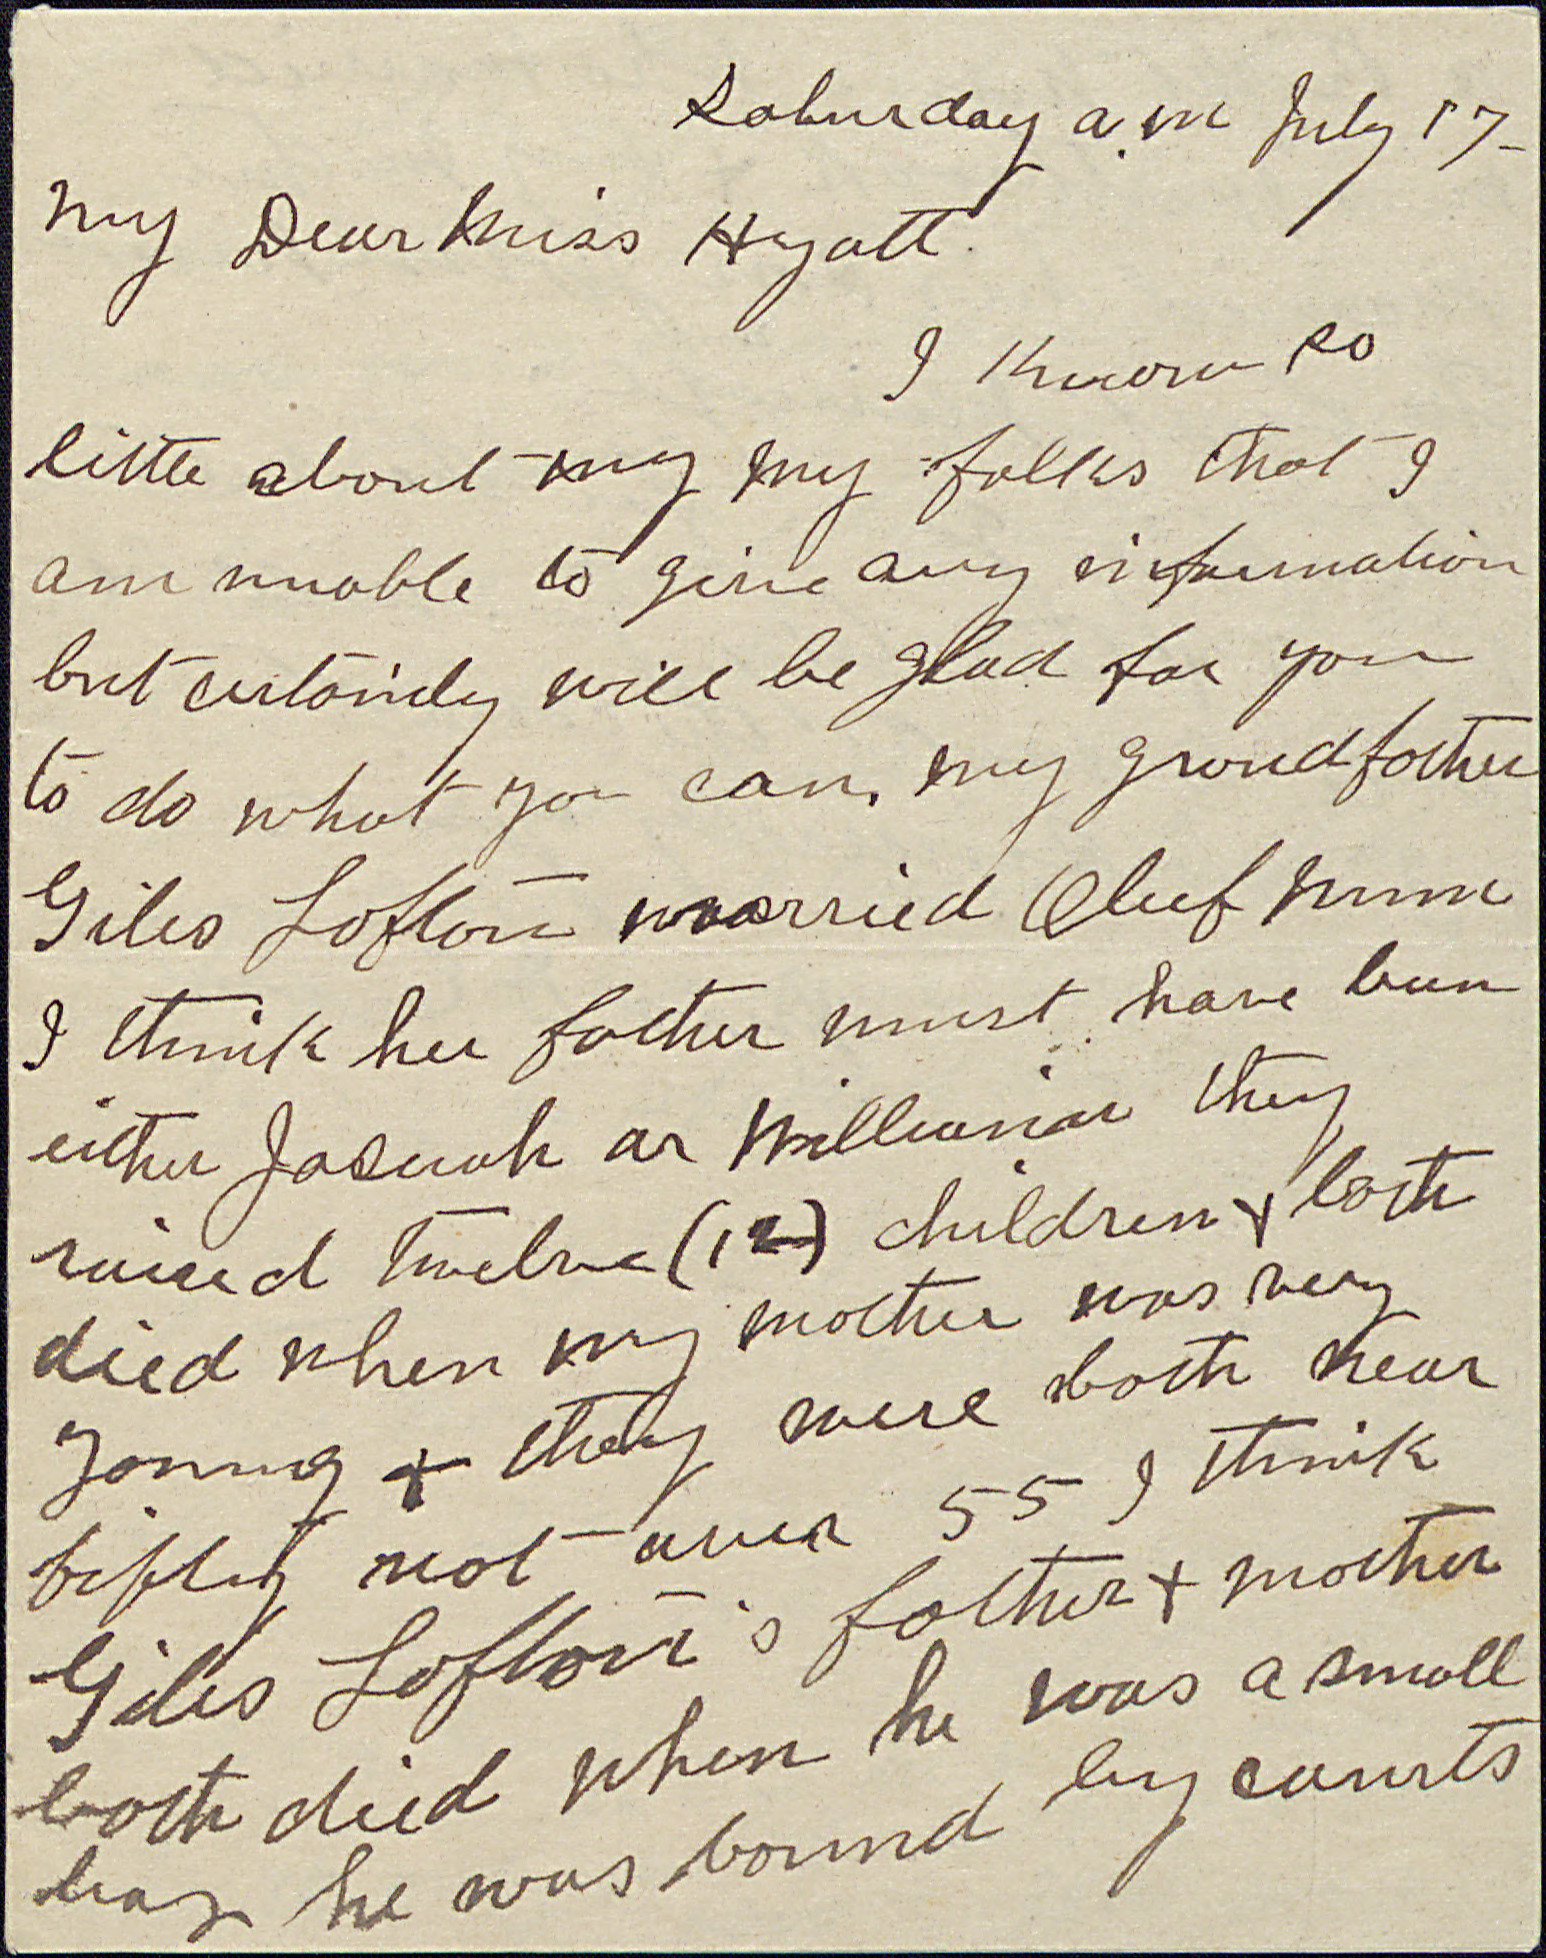 Saturday a.m July 17-
My Dear Miss Hyatt.
I know so
little about my my folks that I
am unable to give any information
but certainly will be glad for you
to do what you can. my grandfather
Giles Lofton married Oleef Nunn
I think her father must have been
either Josuah or William they
raised twelve (12) children + both
died when my mother was very
young + they were both near
fifty not over 55 I think
Giles Lofton's father + mother
both died when he was a small
boy he was bound by courts